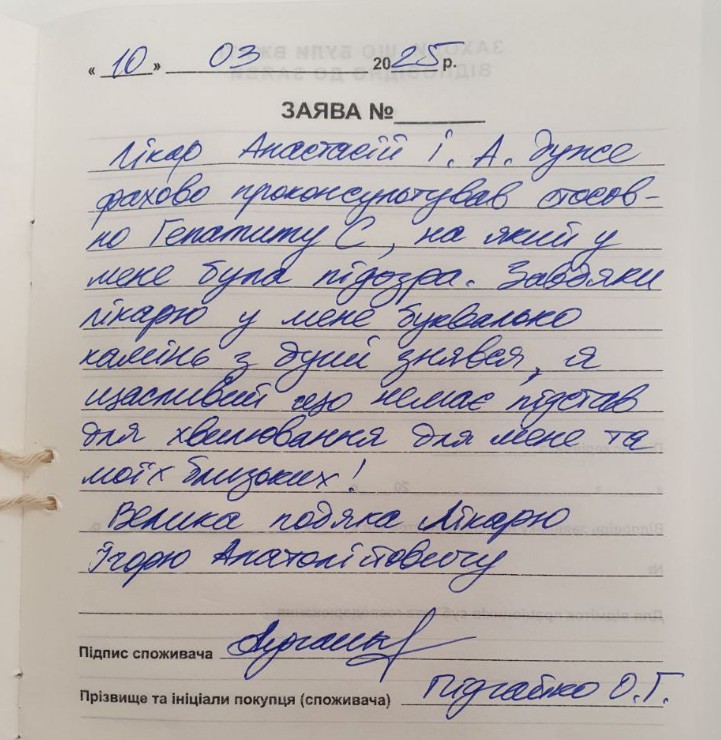 « 10 » 03 2025 р.
ЗАЯВА №
Лікар Анастасій І. А. дуже
фахово проконсультував стосов-
но Гепатиту С, на який у
мене була підозра. Завдяки
лікарю у мене буквально
камінь з душі знявся, я
щасливий що немає підстав
для хвилювання для мене та
моїх близьких!
Велика подяка Лікарю
Ігорю Анатолійовичу
Підпис споживача
Прізвище та ініціали покупця (споживача) Підгайко О.Г.